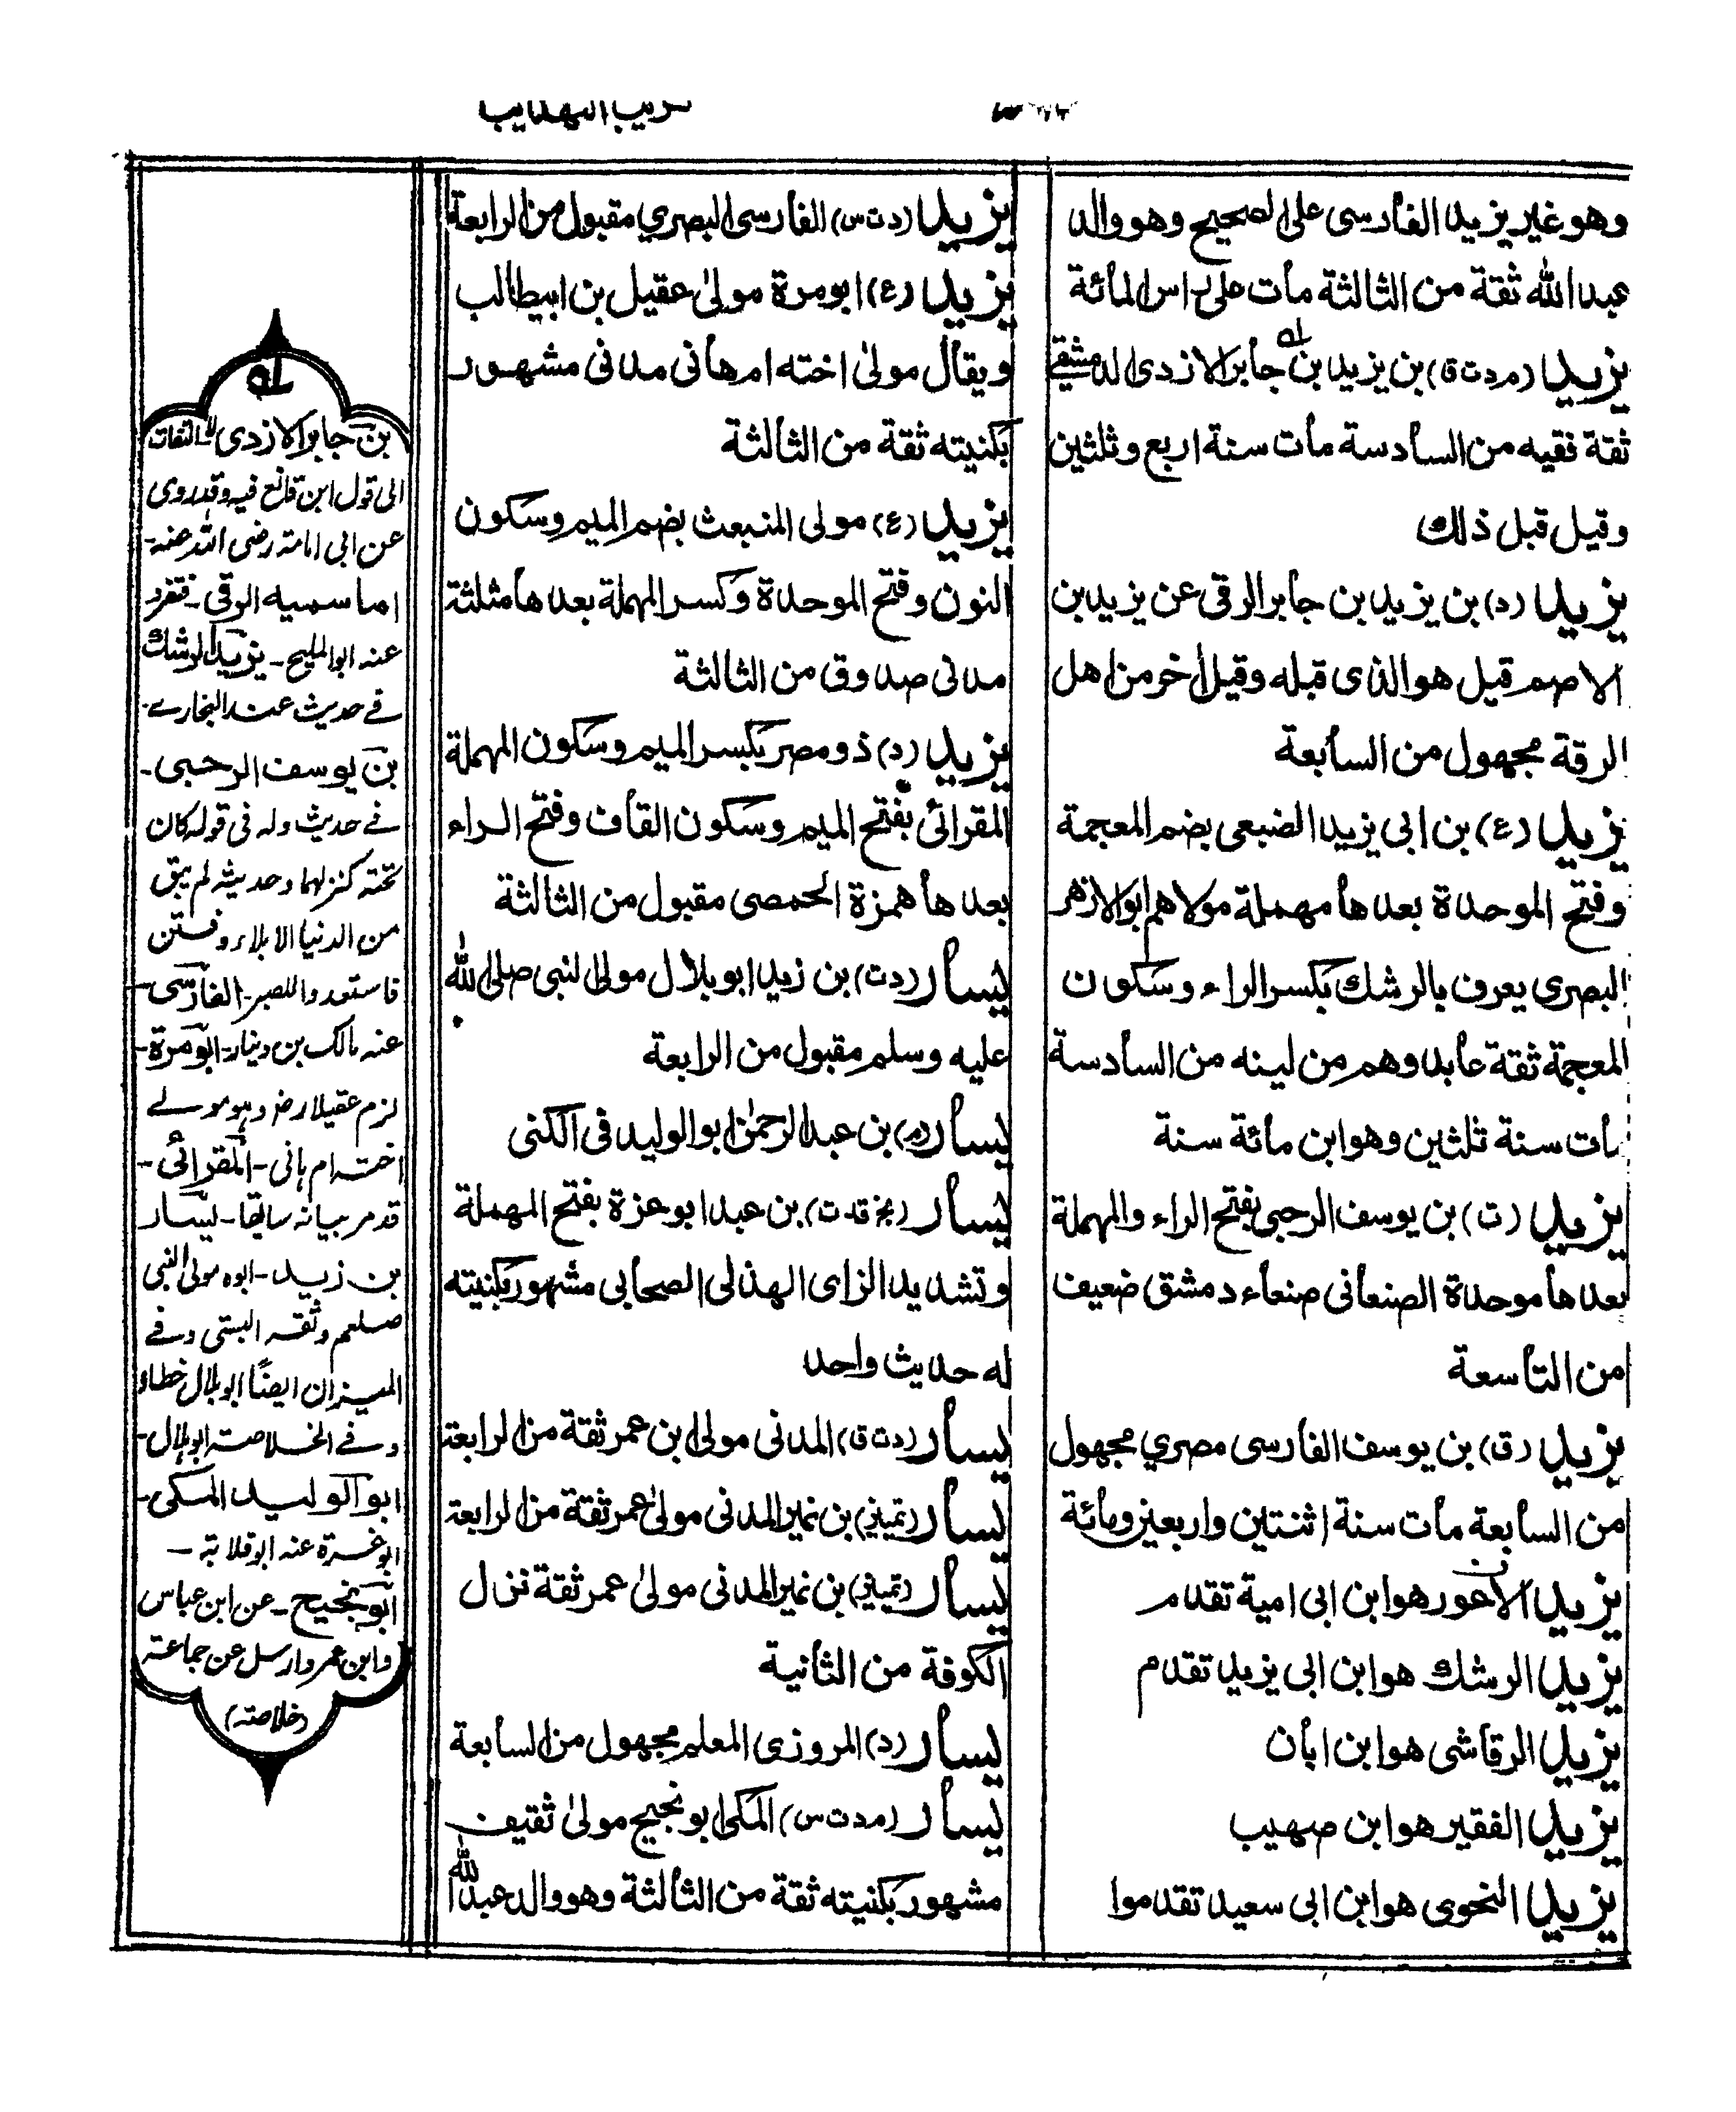 تقريب التهذيب
وهو غير يزيد الفارسى على الصحيح وهو والد
عبد الله ثقة من الثالثة مات على راس المائة
يزيد (م د ت ق) بن يزيد بن جابر الازدى الدمشقي
ثقة فقيه من السادسة مات سنة اربع وثلثين
وقيل قبل ذلك
يزيد (د) بن يزيد بن جابر الرقى عن يزيد بن
الاصم قيل هو الذى قبله وقيل اخر من اهل
الرقة مجهول من السابعة
يزيد (ع) بن ابى يزيد الضبعى بضم المعجمة
وفتح الموحدة بعدها مهملة مولاهم ابو الازهر
البصرى يعرف بالرشك بكسر الراء وسكون
المعجمة ثقة عابد وهم من لينه من السادسة
مات سنة ثلثين وهو ابن مائة سنة
يزيد (ت) بن يوسف الرحبى بفتح الراء والمهملة
بعدها موحدة الصنعانى صنعاء دمشق ضعيف
من التاسعة
يزيد (ق) بن يوسف الفارسى مصري مجهول
من السابعة مات سنة اثنتين واربعين ومائة
يزيد الاعور هو ابن ابى امية تقدم
يزيد الرشك هو ابن ابى يزيد تقدم
يزيد الرقاشى هو ابن ابان
يزيد الفقير هو ابن صهيب
يزيد النحوى هو ابن ابى سعيد تقدموا
يزيد (د ت س) الفارسى البصري مقبول من الرابعة
يزيد (ع) ابو مرة مولىٰ عقيل بن ابيطالب
ويقال مولىٰ اخته ام هانى مدنى مشهور
بكنيته ثقة من الثالثة
يزيد (ع) مولى المنبعث بضم الميم وسكون
النون وفتح الموحدة وكسر المهملة بعدها مثلثة
مدنى صدوق من الثالثة
يزيد (د) ذو مصر بكسر الميم وسكون المهملة
المقرائى بفتح الميم وسكون القاف وفتح الراء
بعدها همزة الحمصى مقبول من الثالثة
يسار (د ت) بن زيد ابو بلال مولى النبى صلى الله
عليه وسلم مقبول من الرابعة
يسار (م) بن عبد الرحمٰن ابو الوليد فى الكنى
يسار (بخ قد ت) بن عبد ابو عزة بفتح المهملة
وتشديد الزاى الهذلى الصحابى مشهور بكنيته
له حديث واحد
يسار (د ت ق) المدنى مولى ابن عمر ثقة من الرابعة
يسار (تمييز) بن نمير المدنى مولىٰ عمر ثقة من الرابعة
يسار (تمييز) بن نمير المدنى مولىٰ عمر ثقة نزل
الكوفة من الثانية
يسار (د) المروزى المعلم مجهول من السابعة
يسار (م د ت س) المكى ابو نجيح مولىٰ ثقيف
مشهور بكنيته ثقة من الثالثة وهو والد عبد الله
له
بن جابر الازدى الثقات
الى قول ابن قانع فيه وقد روى
عن ابى امامة رضى الله عنه -
اما سميه الرقى - فتفرد
عنه ابو المليح - يزيد الرشك
فے حديث عند البخارے -
بن يوسف الرحبى -
فے حديث وله فى قوله كان
تحته كنز لهما وحديثه لم يبق
من الدنيا الا بلاء وفتن
فاستعدوا للصبر - الفارسى -
عنه مالك بن دينار - ابو مرة -
لزم عقيلا رضـ وهو مولے
اخته ام هانى - المقرائى -
قد مر بيانه سابقا - يسار
بن زيد - ابوه مولى النبى
صلعم وثقه البستى وفے
الميزان ايضًا ابو بلال خطاء
وفے الخلاصة ابو هلال -
ابو الوليد المكى -
ابو عزة عنه ابو قلابة -
ابو نجيح - عن ابن عباس
وابن عمر وارسل عن جماعة
(خلاصة)